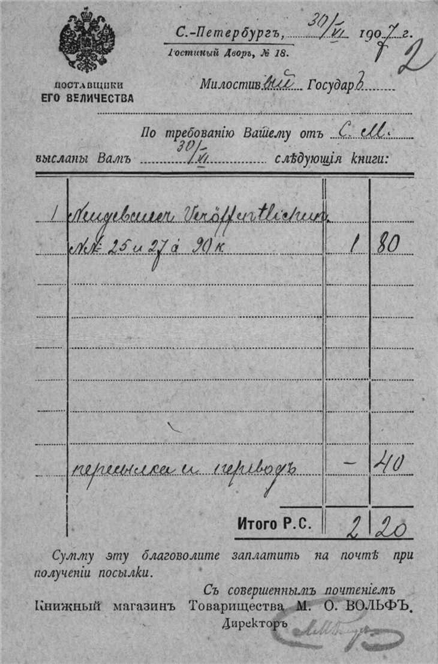 С.-Петербургъ, 30/VI 1907 г.
2
Гостиный Дворъ, № 18.
ПОСТАВЩИКИ
ЕГО ВЕЛИЧЕСТВА
Милостивый Государь
По требованію Вашему отъ С. М.
высланы Вамъ 30/VI слѣдующія книги:
1 Veröffentlichun
NN 25 и 27 à 90 к 1 80
пересылка и переводъ — 40
Итого Р.С. 2 20
Сумму эту благоволите заплатить на почтѣ при
полученіи посылки.
Съ совершеннымъ почтеніемъ
Книжный магазинъ Товарищества М. О. ВОЛЬФЪ.
Директоръ